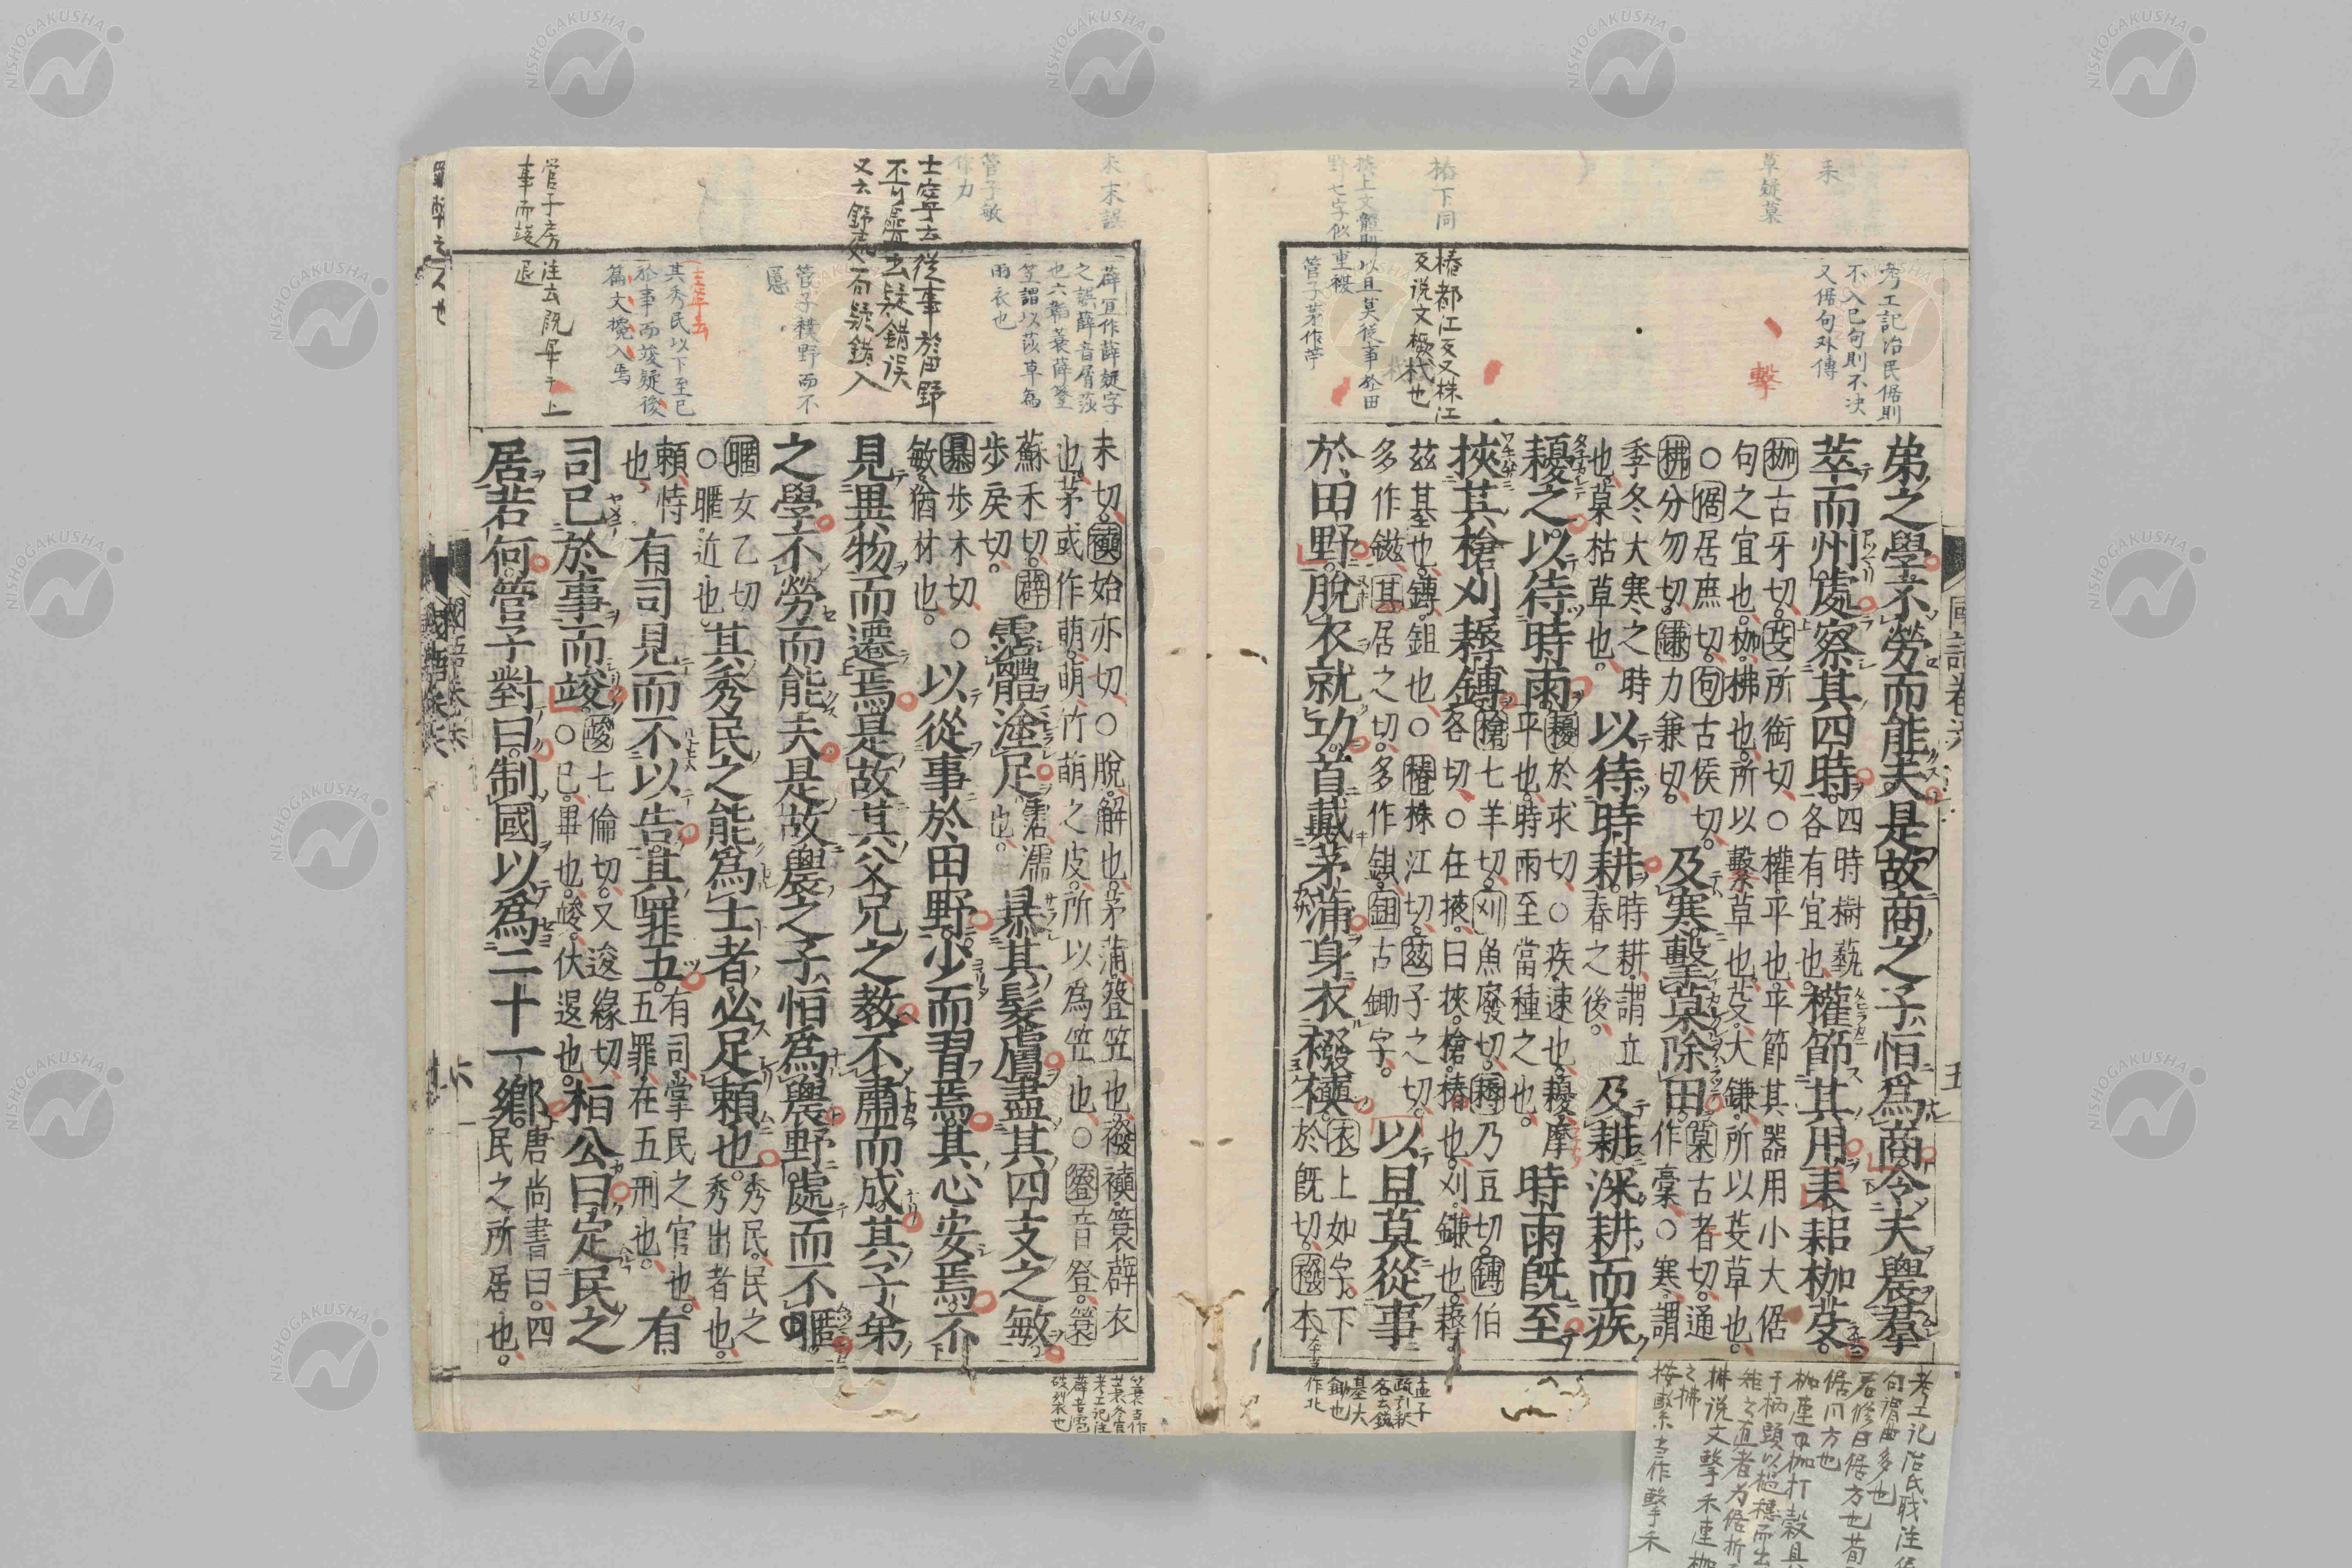 考工記治民倨則
不入已句則不決
又倨句外傳
耒
草疑菒
擊
枱下同
樁都江反又株江
反说文橛杙也
挾上文體則以旦莫從事於田
野七字似重複
管子茅作苧
國語卷六
五
弟之學不勞而能夫是故商之子恒爲商令夫農羣
萃而州處察其四時
四時樹藝
各有宜也
權節其用耒耜枷芟
枷古牙切芟所銜切○權平也平節其器用小大倨
句之宜也枷柫也所以擊草也芟大鎌所以芟草也
○倨居庶切句古侯切
柫分勿切鎌力兼切
及寒擊菒除田
菒古老切通
作稾○寒謂
季冬大寒之時
也菒枯草也
以待時耕
時耕謂立
春之後
及耕深耕而疾
耰之以待時雨
耰於求切○疾速也耰摩
平也時雨至當種之也
時雨既至
挾其槍刈耨鎛
槍七羊切刈魚廢切耨乃豆切鎛伯
各切○在掖曰挾槍樁也刈鎌也耨
茲其也鎛鉏也○樁株江切茲子之切
多作鎡其居之切多作錤鉏古鋤字
以旦莫從事
於田野脫衣就功首戴茅蒲身衣襏襫
衣上如字下
於既切襏本
考工記治民職注倨
句謂曲多也
倨问方也
枷連
于柄頭以檛穗而出
柫说文擊禾連枷
之柫
按繫当作擊禾
末末誤
薜宜作薜疑字
之誤薜音屑莎
也六韜蓑薜簦
笠謂以莎草為
雨衣也
管子敏
作力
士寧云從事於田野
不可叠出疑錯误
又云野處而疑錯入
管子樸野而不
慝
士寧云
其秀民以下至已
於事而竣疑後
篇文攙入焉
管子房注云既畢于上
事而竣退
未切襫始亦切○脫解也茅蒲簦笠也襏襫簑薜衣
也茅或作萌萌竹萌之皮所以爲笠也○簦音登簑
蘇禾切薜
步戾切
霑體塗足
霑濡
也
暴其髮膚盡其四支之敏
暴步木切○
敏猶材也
以從事於田野少而習焉其心安焉不
見異物而遷焉是故其父兄之教不肅而成其子弟
之學不勞而能夫是故農之子恒爲農野處而不暱
暱女乙切
○暱近也
其秀民之能爲士者必足賴也
秀民民之
秀出者也
賴恃
也
有司見而不以告其罪五
有司掌民之官也
五罪在五刑也
有
司已於事而竣
竣七倫切又逡緣切
○已畢也竣伏退也
桓公曰定民之
居若何管子對曰制國以爲二十一鄉
唐尚書曰四
民之所居也
NISHOGAKUSHA